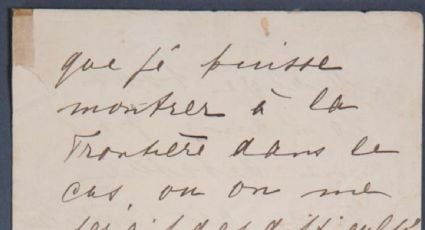 que je puisse
montrer à la
Frontière dans le
cas, ou on me